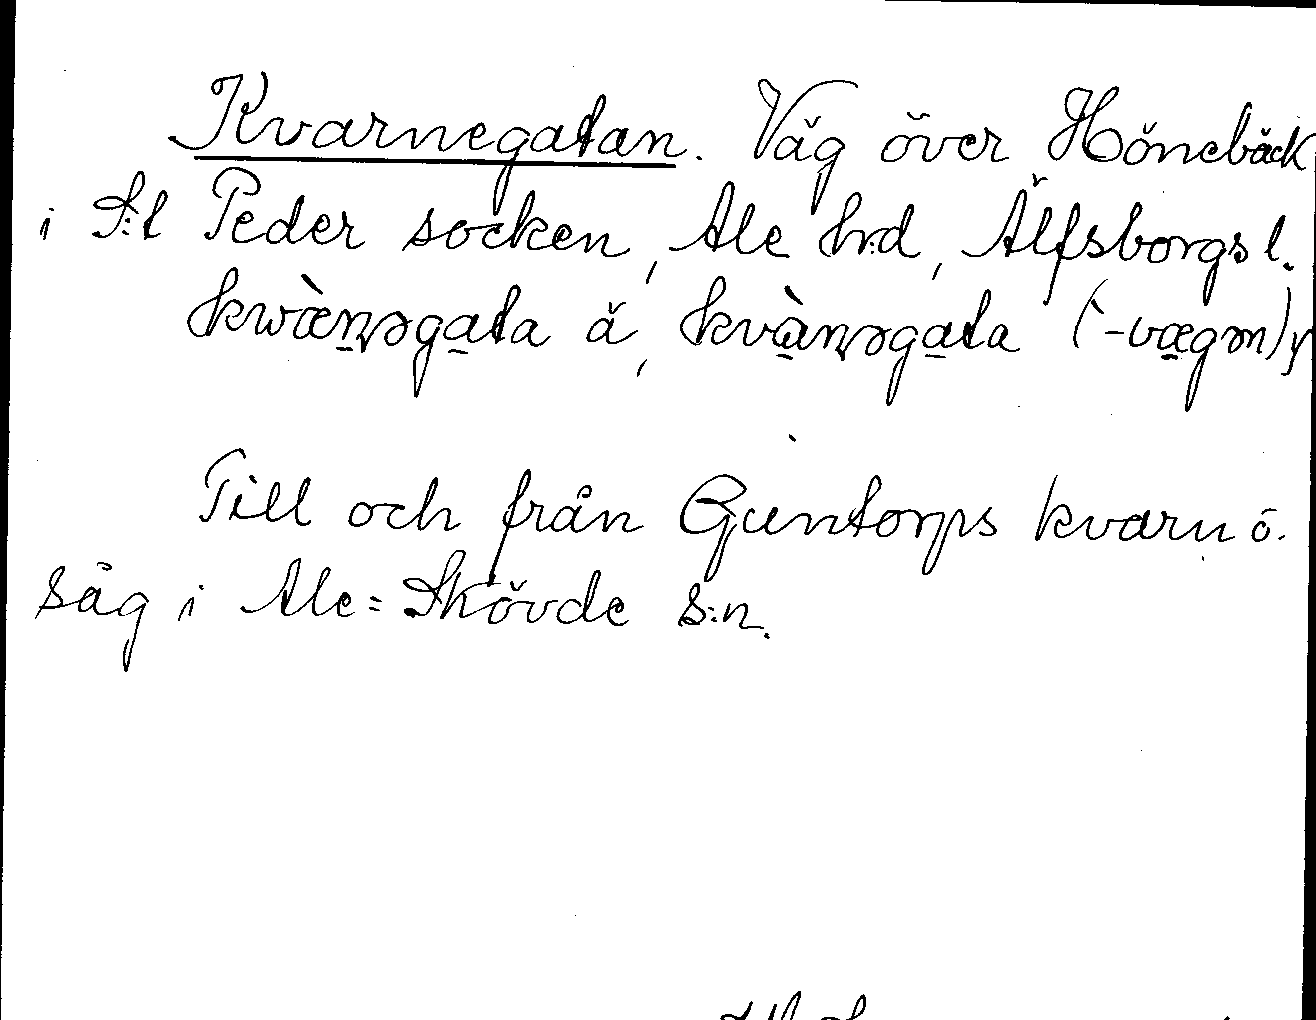 Kvarnegatan. Väg över Hönebäck
i S:t Peder socken, Ale hrd, Älfsborgs l.
kwæ̀ṇəgata ä, kvàṇəgata (-vægən) y
Till och från Guntorps kvarn o.
såg i Ale=Skövde s:n.